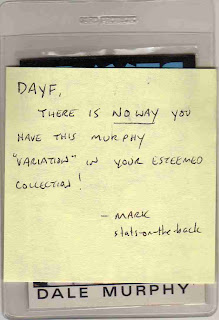 DAYF,
THERE IS NO WAY YOU
HAVE THIS MURPHY
"VARIATION" IN YOUR ESTEEMED
COLLECTION!
- MARK
stats-on-the-back
DALE MURPHY